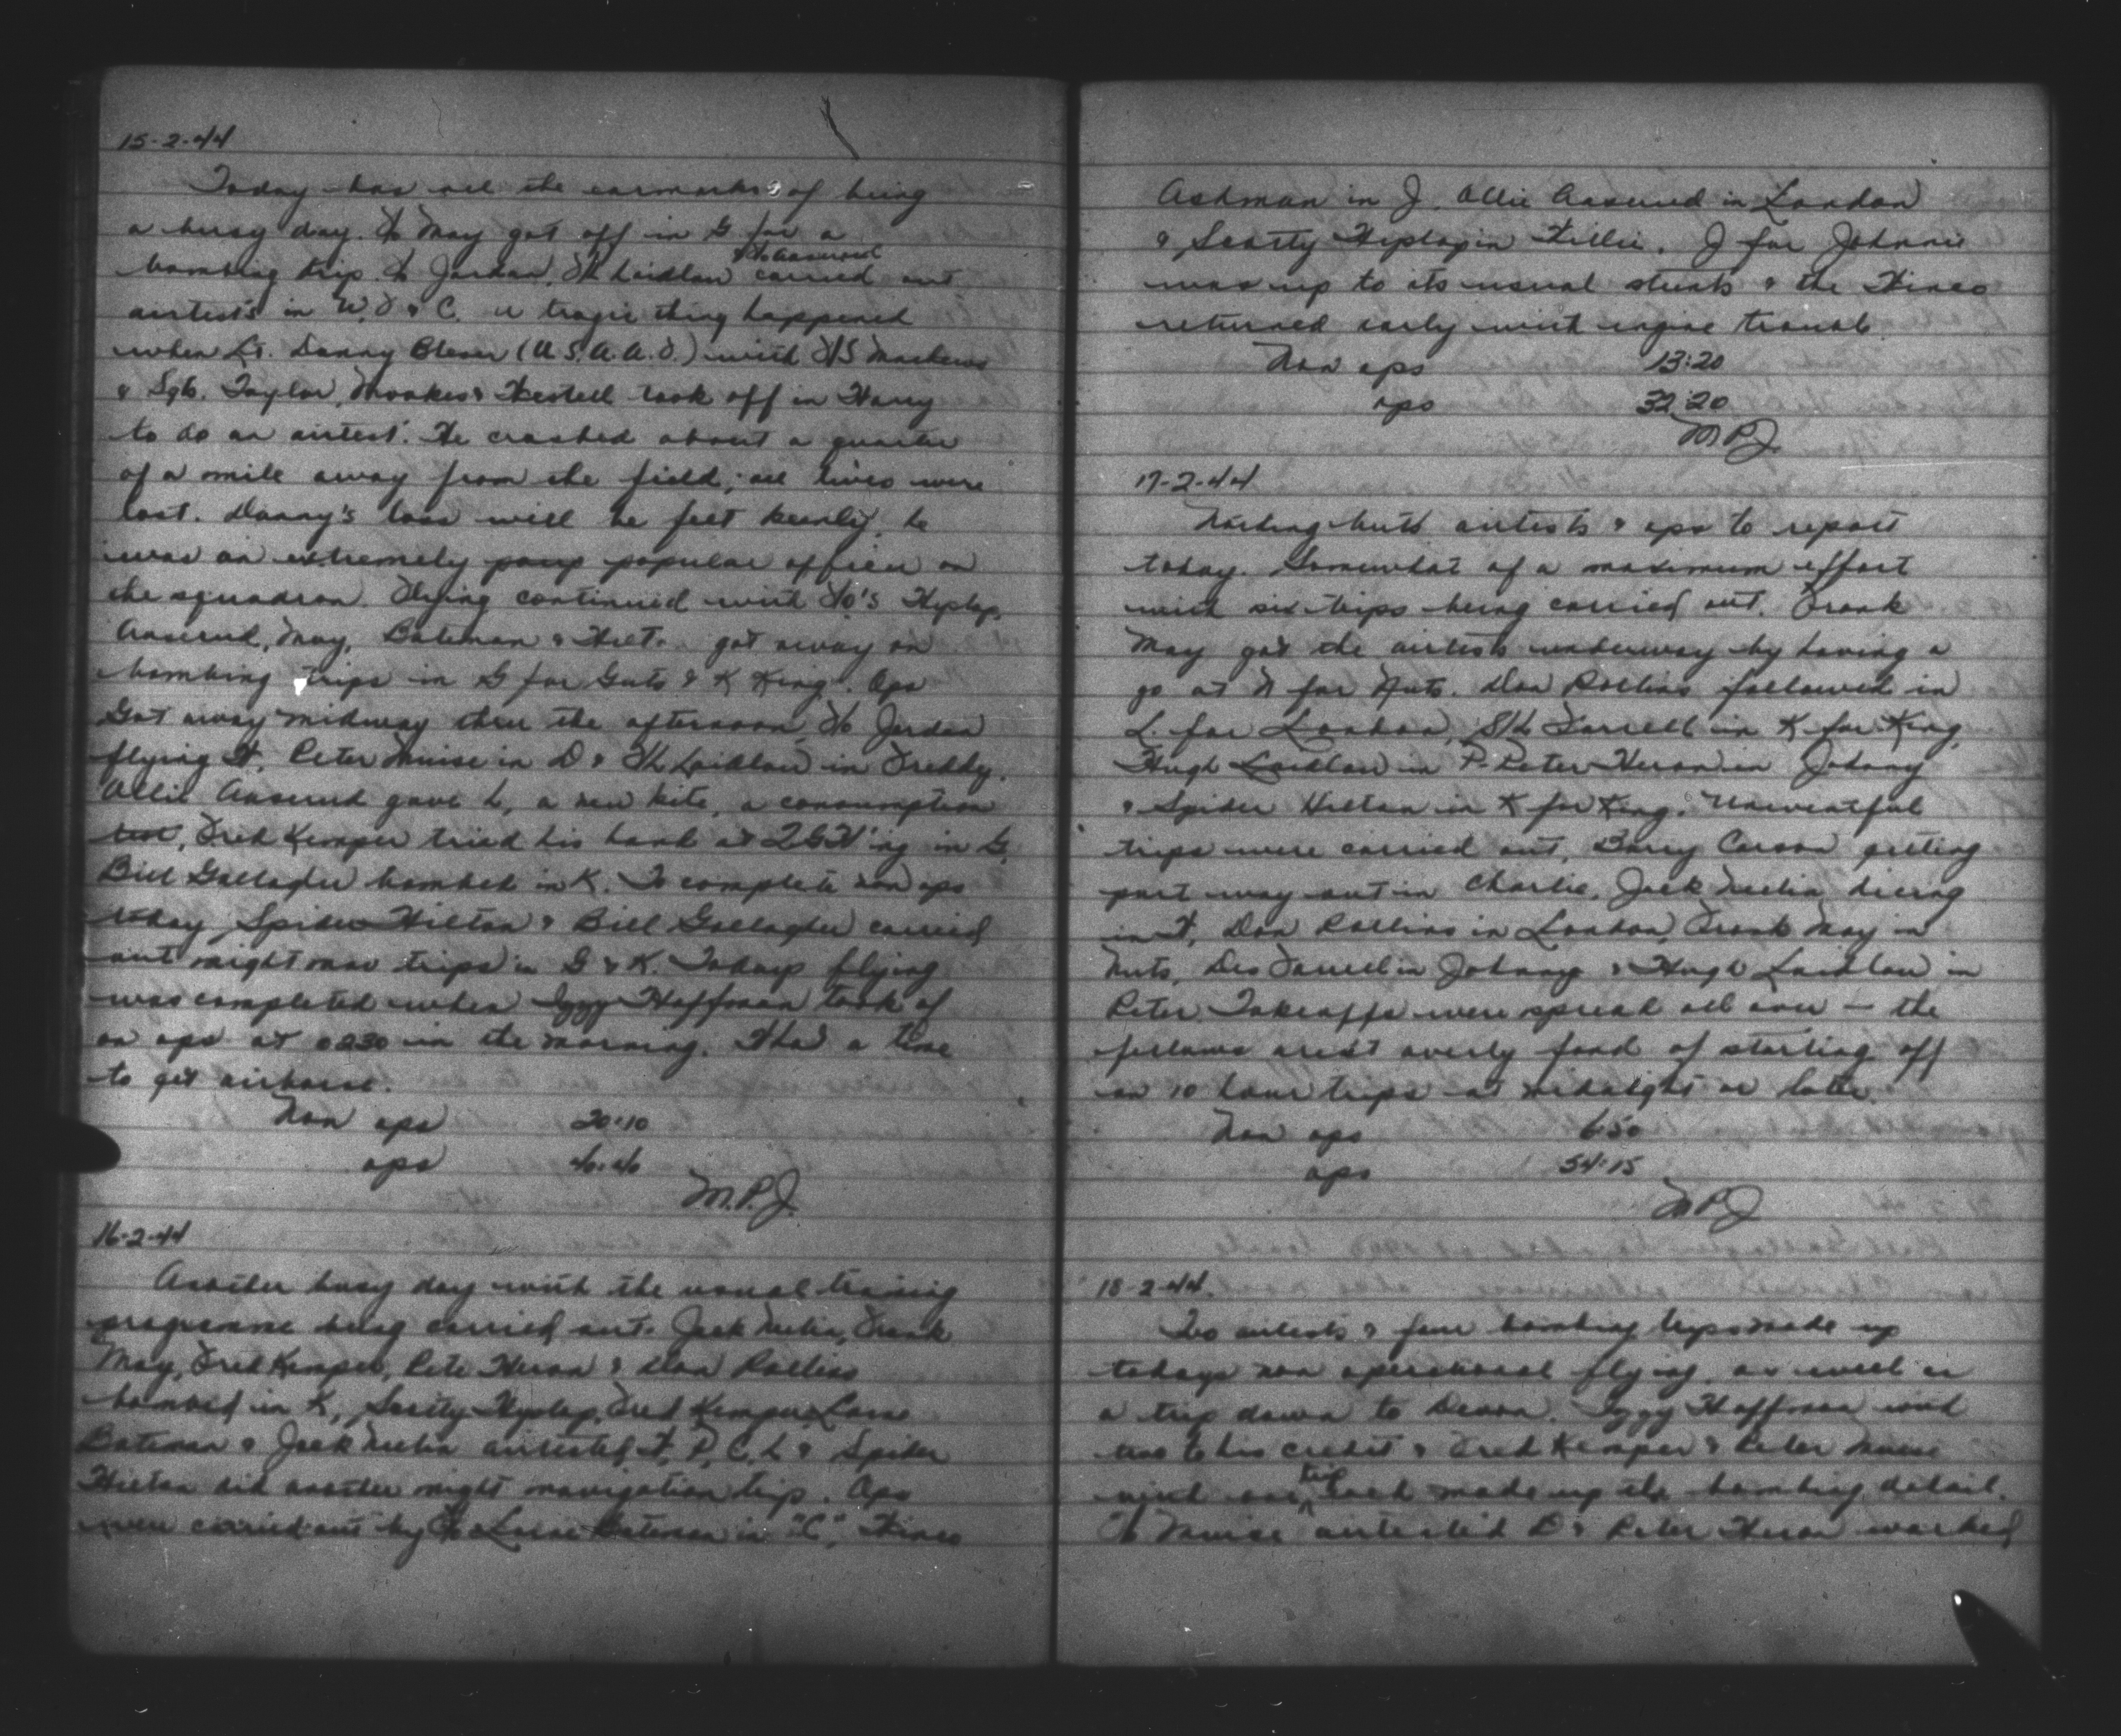 15-2-44
Today has all the earmarks of being
a busy day. F/O May got off in G for a
& F/O Aaserud
bombing trip. F/O Jordan, F/L Laidlaw carried out
airtests in W, D & C. A tragic thing happened
when Lt. Danny (U.S.A.A.F.) with F/S
& Sgts. Taylor, & took off in Harry
to do an airtest. He crashed about a quarter
of a mile away from the field; all lives were
lost. Danny's loss will be felt keenly, he
was an extremely popular officer on
the squadron. Flying continued with F/O's Hyslop,
Aaserud, May, Bateman & Hilt. got away on
bombing trips in G for Guts & K King. Ops
Got away midway thru the afternoon, F/O Jordan
flying H, Peter Muise in D & F/L Laidlaw in Freddy.
Ollie Aaserud gave L, a new kite, a consumption
test, Fred Kemper tried his hand at in G,
Bill Gallagher bombed in K. To complete non ops
today Spider Hilton & Bill Gallagher carried
out night nav trips in G & K. Todays flying
was completed when Iggy Hoffman took of
on ops at 0230 in the morning. Had a time
to get airborne.
Non ops 20:10
ops 40:40
M.P.J.
16-2-44
Another busy day with the usual training
programme being carried out. Jack Neelin, Frank
May, Fred Kemper, Pete Heron & Don Rollins
bombed in K, Scotty Hyslop, Fred Kemper, Lorne
Bateman & Jack Neelin airtested H, P, C, L & Spider
Hilton did another night navigation trip. Ops
were carried out by F/O Lorne Bateman in "C",
Ashman in J, Ollie Aaserud in London
& Scotty Hyslop in Willie. J for Johnnie
was up to its usual stunts & the
returned early with engine trouble
Non ops 13:20
ops 32:20
M.P.J.
17-2-44
Nothing but airtests & ops to report
today. Somewhat of a maximum effort
with six trips being carried out. Frank
May got the airtests underway by having a
go at N for Nuts. Don Rollins followed in
L. for London, S/L Farrell in K for King,
Hugh Laidlaw in P- Peter Heron in Johnny
& Spider Hilton in K for King. Uneventful
trips were carried out, Barry Carson getting
part way out in Charlie, Jack Neelin being
in H, Don Rollins in London, Frank May in
Nuts, Des Farrell in Johnny & Hugh Laidlaw in
Peter. Takeoffs were spread all over - the
fellows aren't overly fond of starting off
on 10 hour trips at midnight or later.
Non ops 6:50
ops 54:15
M P J
18-2-44.
Two airtests & four bombing trips made up
todays non operational flying, as well as
a trip down to Devon. Iggy Hoffman with
two to his credit & Fred Kemper & Peter Muise
trip
with one each made up the bombing detail.
F/O Muise airtested D & Peter Heron worked